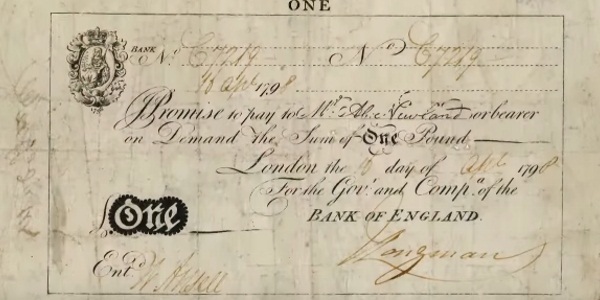 ONE
BANK
No. C7219 No. C7219
16 Apl 1798
I Promise to pay to Mr. Abm. Newland or bearer
on Demand the Sum of One Pound
London the 16 day of Apl 1798
For the Govr. and Compa. of the
BANK OF ENGLAND.
£ One
Longman
Entd.